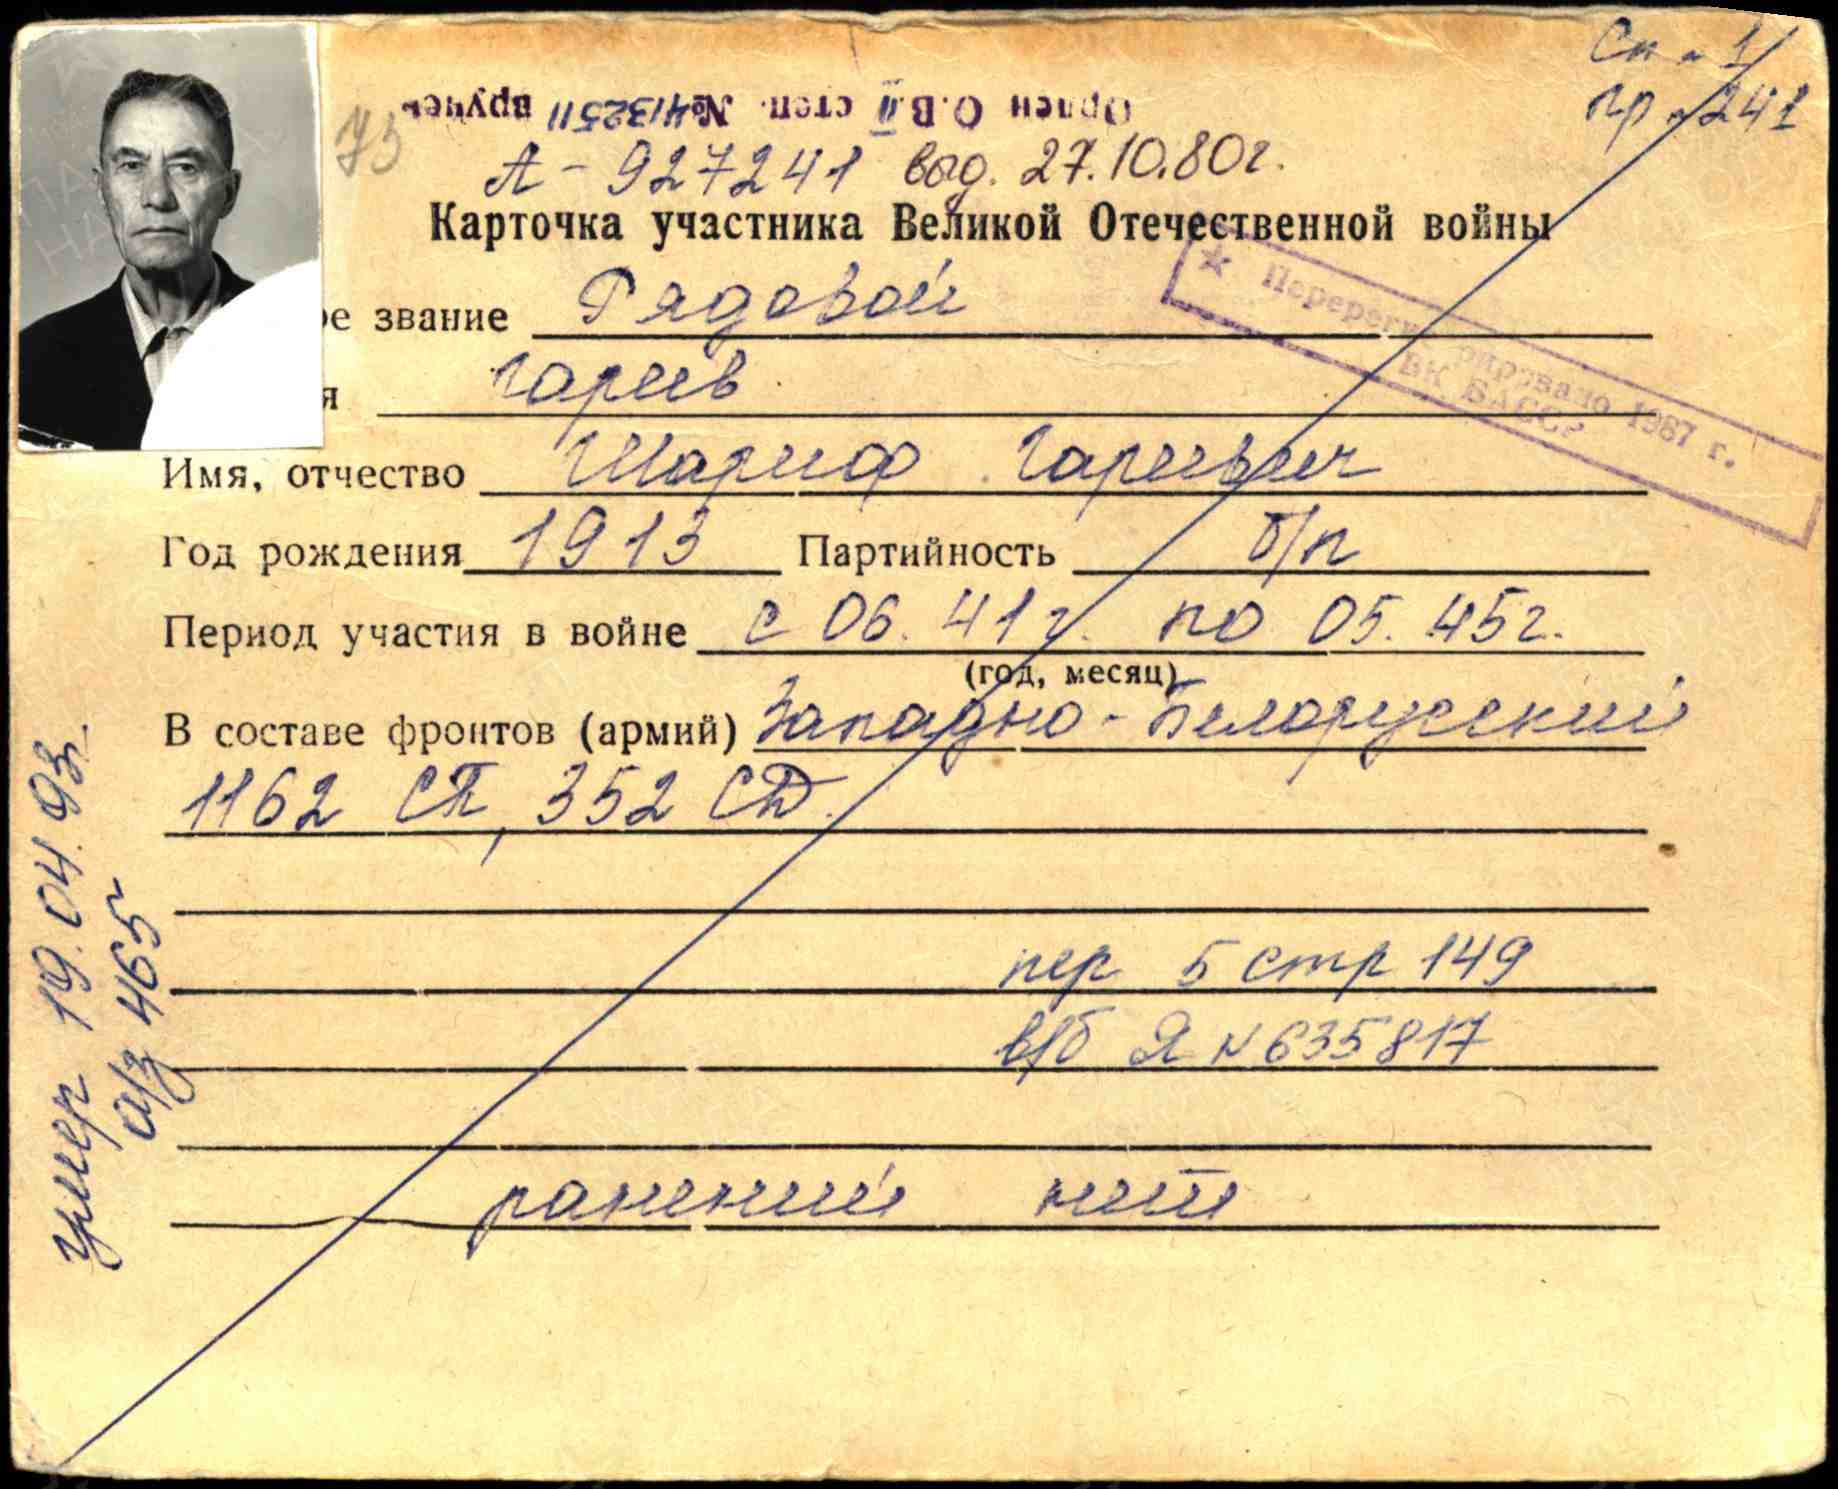 Сп - 1
пр - 241
73
Орден О.В. II степ. № 4132511 вручен
А - 927241 выд. 27.10.80г.
Карточка участника Великой Отечественной войны
ое звание Рядовой
я Гареев
Имя, отчество Шариф Гареевич
Перерегистрировано 1987 г.
ВК БАССР
Год рождения 1913 Партийность б/п
Период участия в войне с 06. 41г. по 05. 45г.
(год, месяц)
В составе фронтов (армий) Западно-Белорусский
1162 СП, 352 СД.
пер 5 стр 149
в/б Я N 635817
ранений нет
умер 19.04.93г.
а/з 465